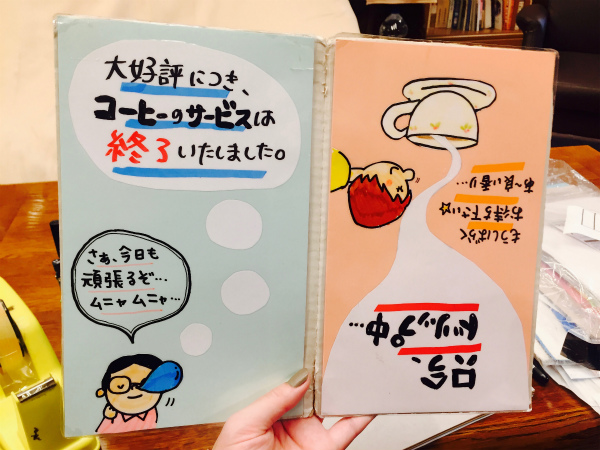 大好評につき、
コーヒーのサービスは
終了いたしました。
さぁ、今日も
頑張るぞ…
ムニャムニャ…
只今、
ドリップ中…
もうしばらく
お待ち下さい☆
あ〜良い香り…